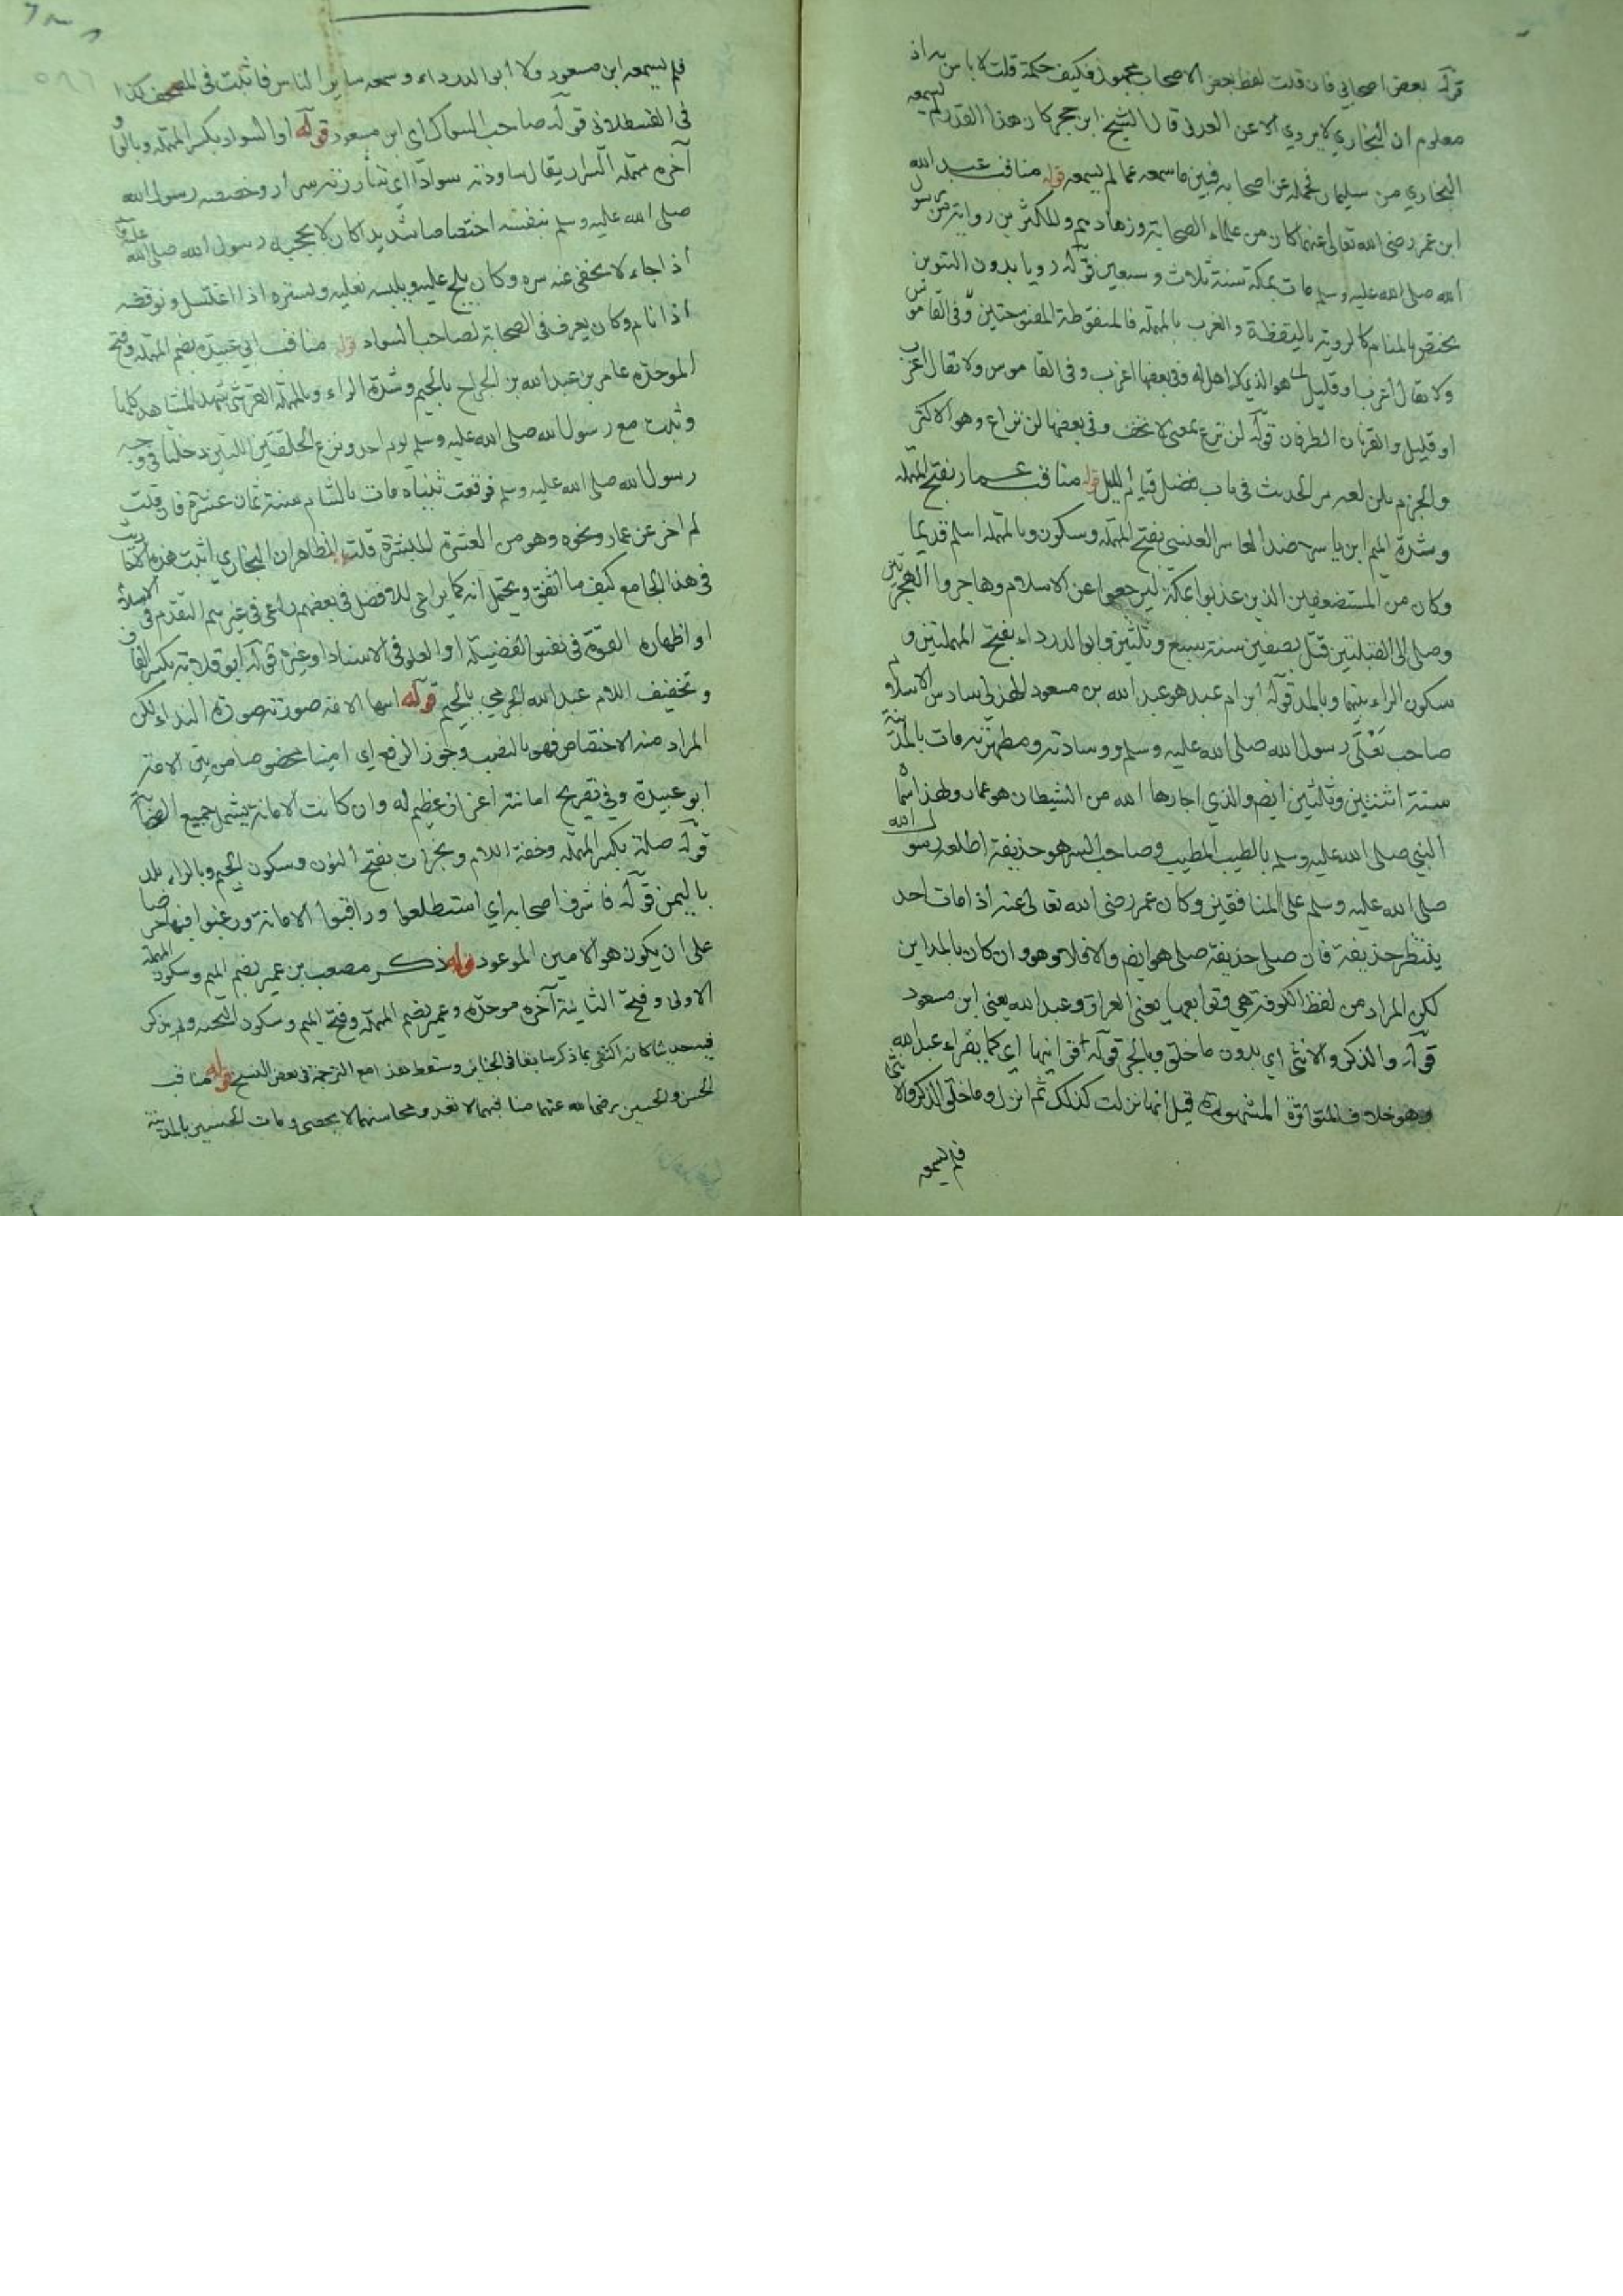 قوله بعض اصحابي فان قلت لفظ بعض الاصحاب مجهول فكيف حكمه قلت لا باس به اذ
معلوم ان البخاري لا يروي الا عن العدل قال الشيخ ابن حجر كان هذا القدر لم يسمعه
البخاري من سليمان فحمله عن اصحابه فبين ما سمعه عما لم يسمعه قوله مناقب عبد الله
ابن عمر رضي الله تعالى عنهما كان من علماء الصحابة وزهادهم والمكثرين رواية من رسول
الله صلى الله عليه وسلم مات بمكة سنة ثلاث و سبعين قوله رويا بدون التنوين
يختص بالمنام كالروية باليقظة والعزب بالمهملة فالمنقوطة المفتوحتين وفي القاموس
ولا يقال أعزب او قليل هو الذي لا اهل له وفي بعضها اعزب و في القاموس ولا تقال اعزب
او قليل والقرنان الطرفان قوله لن ترع بمعنى لا تخف وفي بعضها لن تراع وهو الاكثر
والجزم بلن لغة مر الحديث في باب فضل قيام الليل قوله مناقب عمار بفتح المهملة
وشدة الميم ابن ياسر ضد العاسر العنسي بفتح المهملة وسكون وبالمهملة اسلم قديما
وكان من المستضعفين الذين عذبوا بمكة ليرجعوا عن الاسلام وهاجروا الهجرتين
وصلى الى القبلتين قتل بصفين سنة سبع وثلثين وابو الدرداء بفتح المهملتين و
سكون الراء بينهما وبالمد قوله ابن ام عبد هو عبد الله بن مسعود الهذلي سادس الاسلام
صاحب نعلي رسول الله صلى الله عليه وسلم ووسادته ومطهرته مات بالمدينة
سنة اثنتين وثلثين ايضم والذي اجارها الله من الشيطان هو عمار ولهذا سماه
النبي صلى الله عليه وسلم بالطيب المطيب وصاحب السر هو حذيفة اطلعه رسول الله
صلى الله عليه وسلم على المنافقين وكان عمر رضي الله تعالى عنه اذا مات احد
ينتظر حذيفة فان صلى حذيفة صلى هو ايضم والا فلا وهو وان كان بالمداين
لكن المراد من لفظ الكوفة هي وتوابعها يعني العراق وعبد الله يعني ابن مسعود
قوله والذكر والانثى اي بدون ما خلق وبالجر قوله اقرانيها اي كما يقراء عبد الله
وهو خلاف المتواترة المشهورة قيل انها نزلت كذلك ثم انزل وما خلق الذكر والانثى
فلم يسمعه
فلم يسمعه ابن مسعود ولا أبو الدرداء وسمعه ساير الناس فاثبت في المصحف كذا
في القسطلاني قوله صاحب السواك اي ابن مسعود قوله او السواد بكسر المهملة وبالواو
آخره مهملة السرار يقال ساودته سوادا اي ساررته سرارا وخصصه رسول الله
صلى الله عليه وسلم بنفسه اختصاصا شديدا كان لا يحجبه رسول الله صلى الله عليه
اذا جاء ولا يخفى عنه سره وكان يلج عليه ويلبسه نعليه ويستره اذا اغتسل ويوقظه
اذا نام وكان يعرف في الصحابة لصاحب السواد قوله مناقب ابي عبيدة بضم المهملة وفتح
الموحدة عامر بن عبد الله بن الجراح بالجيم وشدة الراء وبالمهملة القرشي شهد المشاهد كلها
وثبت مع رسول الله صلى الله عليه وسلم يوم احد ونزع الحلقتين اللتين دخلتا في وجه
رسول الله صلى الله عليه وسلم فوقعت ثنيتاه مات بالشام سنة ثمان عشرة فان قلت
لم اخر عن عمار ونحوه وهو من العشرة المبشرة قلت الظاهر ان البخاري اثبت هذه
في هذا الجامع كيف ما اتفق ويحتمل انه كما يراعي الافضل في بعضهم راعى في غيرهم التقدم في الاسلام
او اظهاره القوة في نفس الفضيلة او العلو في الاسناد او غيره قوله ابو قلابة بكسر القاف
وتخفيف اللام عبد الله الجرمي بالجيم قوله ايتها الامة صورته صورة النداء لكن
المراد منه الاختصاص فهو بالنصب وجوز الرفع اي امينا مخصوصا من بين الامة
ابو عبيدة وفي تصريح امانته اعزاز عظيم له وان كانت الامانة يشمل جميع الصحابة
قوله صلة بكسر المهملة وخفة اللام ونجران بفتح النون وسكون الجيم وبالراء بلد
باليمن قوله فاشرف اصحابه اي استطلعوا وراقبوا الامانة ورغبوا فيها حرصا
على ان يكون هو الامين الموعود قوله ذكر مصعب بن عمير بضم الميم وسكون المهملة
الاولى وفتح الثانية آخره موحدة وعمير بضم المهملة وفتح الميم وسكون التحتية ولم يذكر
فيه حديثا كانه اكتفى بما ذكر سابقا في الجنايز وسقط هذا مع الترجمة في بعض النسخ قوله مناقب
الحسن والحسين رضي الله عنهما مناقبهما لا تعد ومحاسنهما لا يحصى ومات الحسن بالمدينة